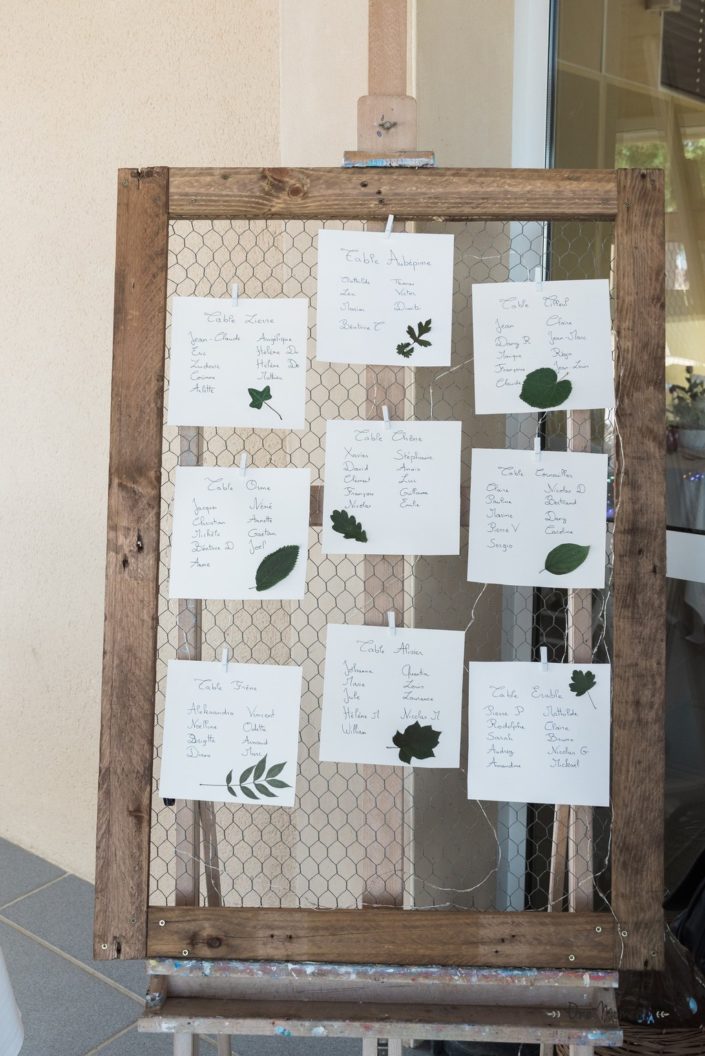 Table Aubépine
Mathilde Thomas
Léa Victor
Marion Diante
Béatrice C
Table Lierre
Jean-Claude Angélique
Eric Hélène Du
Ludovic Hélène De
Corinne Mathieu
Arlette
Table Tilleul
Jean Claire
Dany R Jean-Marc
Monique Régis
François Jean-Louis
Claude
Table Chêne
Xavier Stéphane
David Anaïs
Clément Luis
François Guillaume
Nicolas Emilie
Table Orme
Jacques Néné
Christian Annette
Michèle Gaëtan
Béatrice D Joël
Anne
Table Cornouiller
Claire Nicolas D
Pauline Bertrand
Maxime Dany
Pierre V Caroline
Sergio
Table Frêne
Aleksandra Vincent
Noëlline Odette
Brigitte Arnaud
Marc
Table Alisier
Johanna Quentin
Marie Louis
Julie Laurence
Hélène M Nicolas M
William
Table Erable
Pierre P Mathilde
Rodolphe Claire
Sarah Bruno
Audrey Nicolas G
Amandine Mickaël